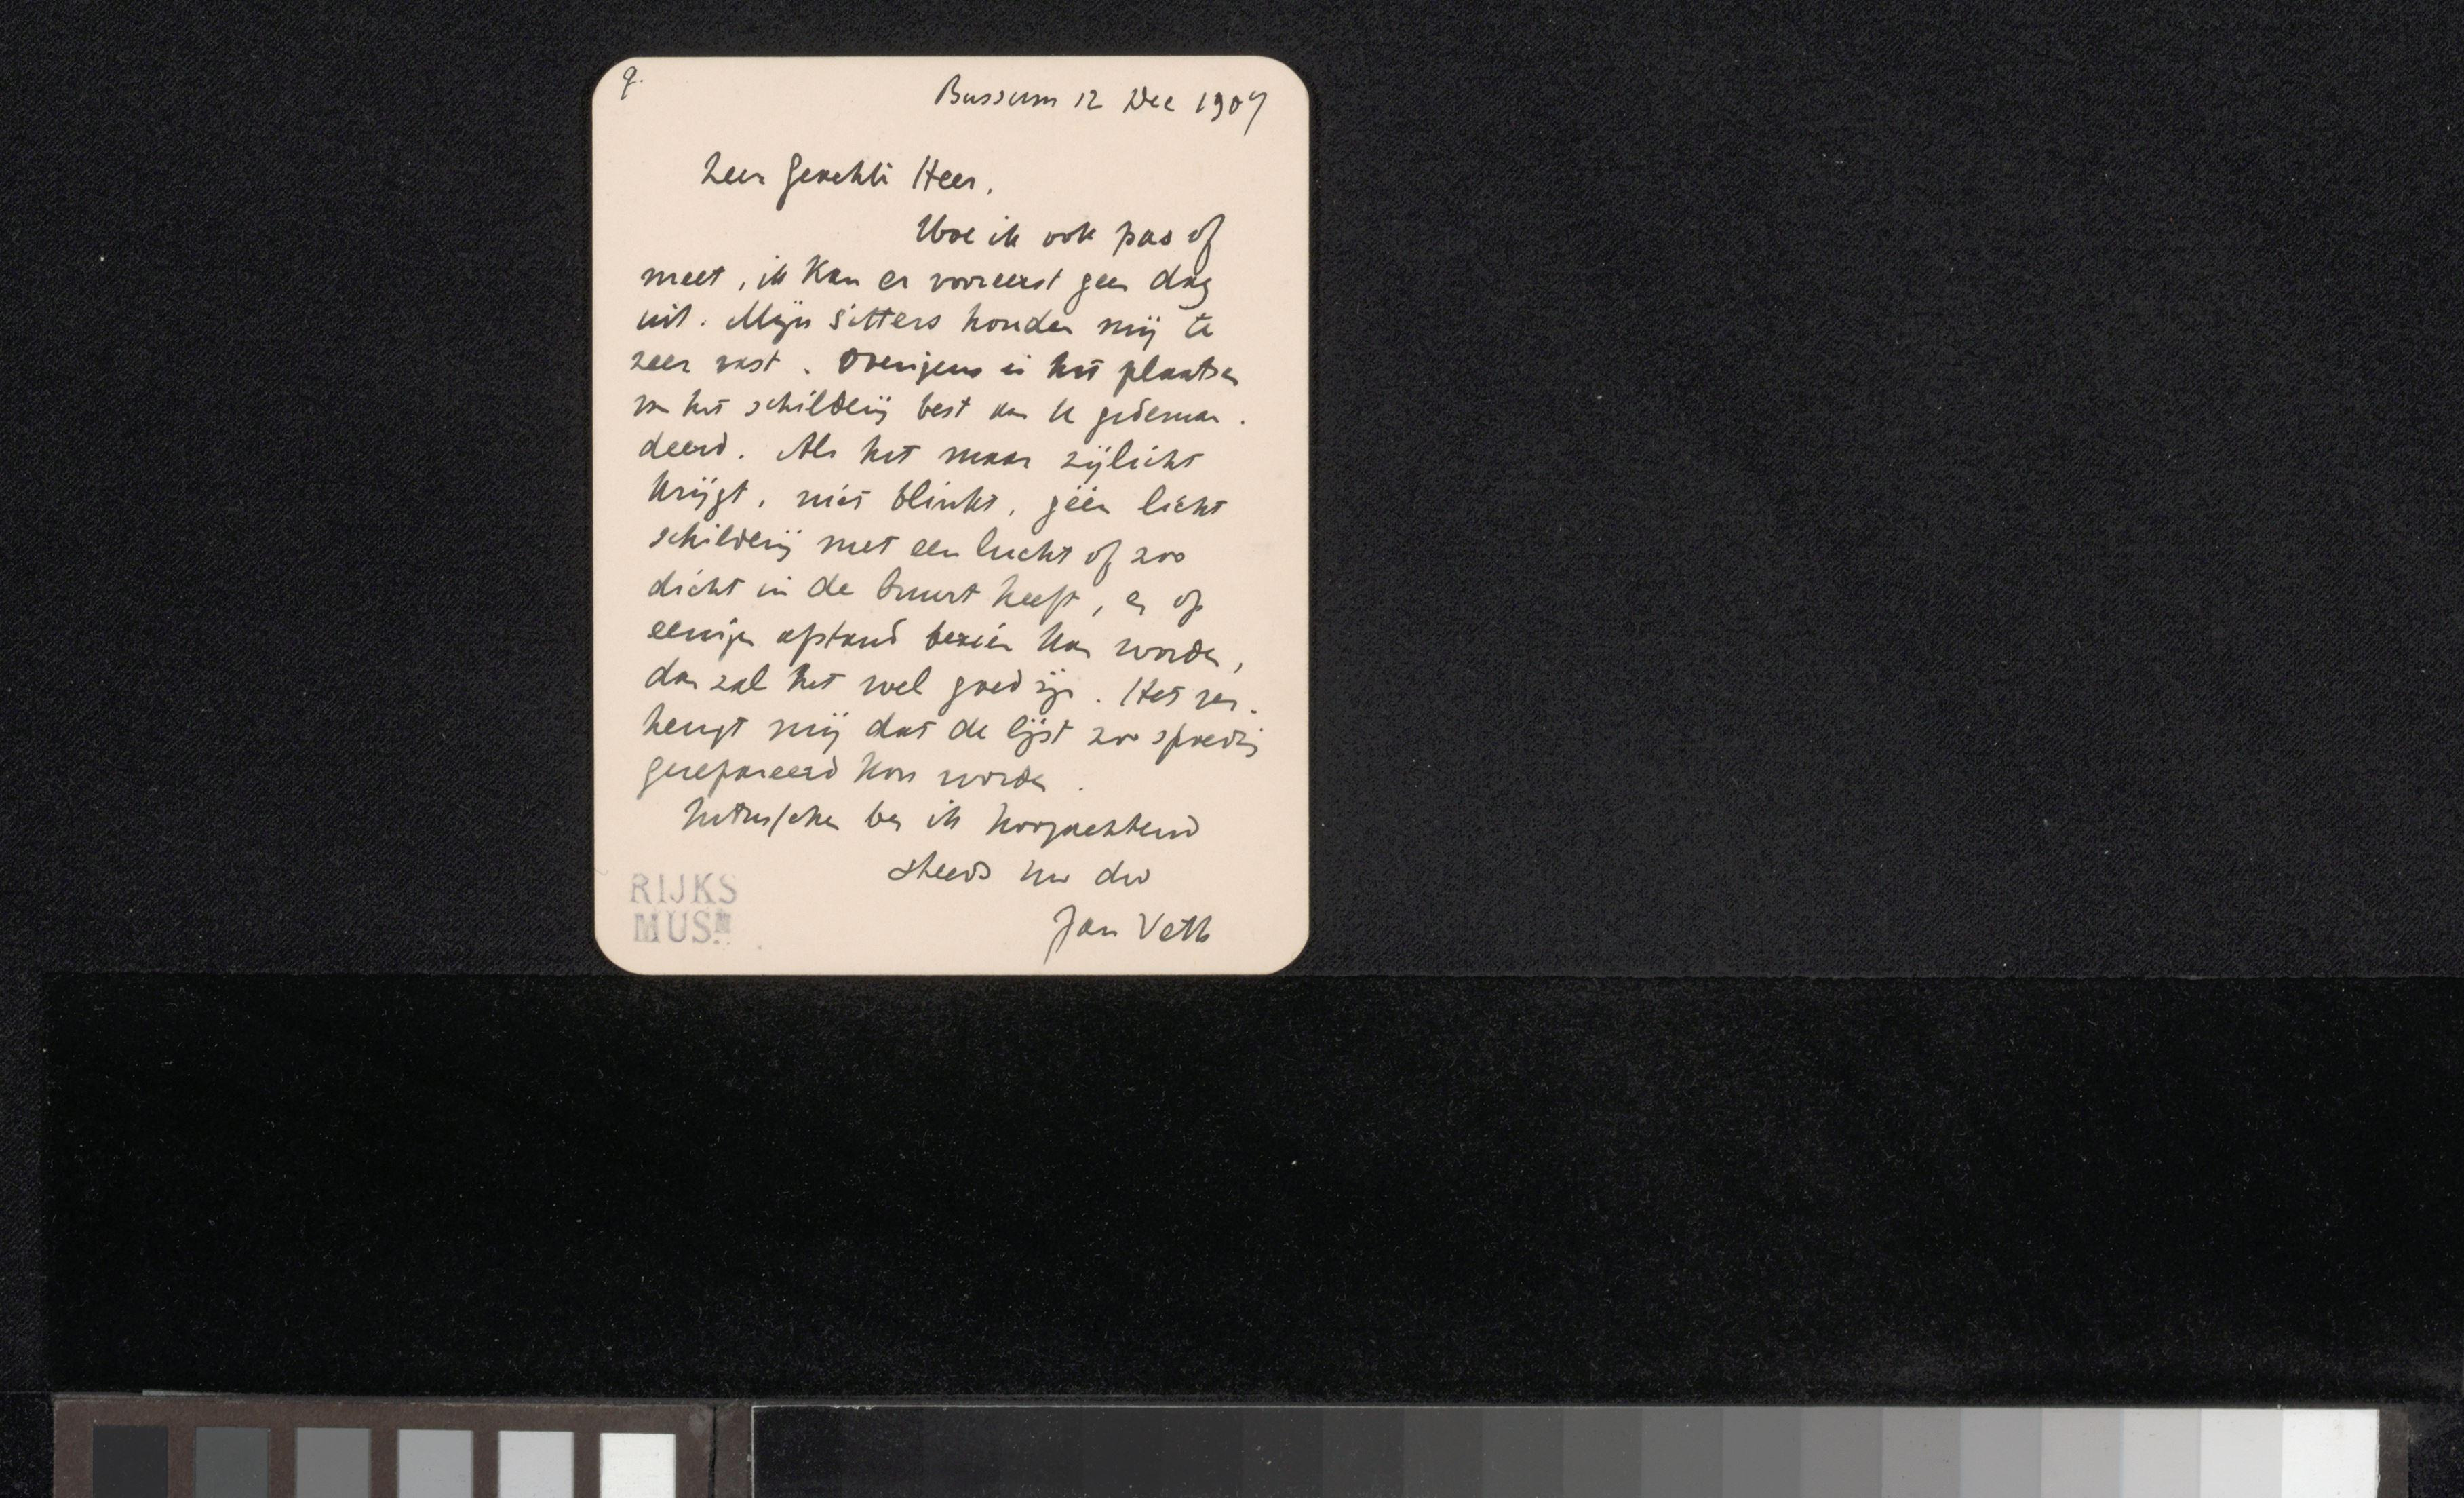 9.
Bussum 12 Dec 1907
Zeer Geachte Heer,
Hoe ik ook pas of
meet, ik kan er vooreerst geen dag
uit. Mijn sitters houden mij te
zeer vast. Overigens is het plaatsen
van het schilderij best aan U
deerd. Als het maar zijlicht
krijgt, niet blinkt, géén licht
schilderij met een lucht of zoo
dicht in de buurt heeft, en op
eenigen afstand bezien kan worden,
dan zal het wel goed zijn. Het ver-
heugt mij dat de lijst zoo spoedig
gerepareerd kon worden.
Intusschen ben ik hoogachtend
steeds Uw dw
Jan Veth
RIJKS
MUS.M